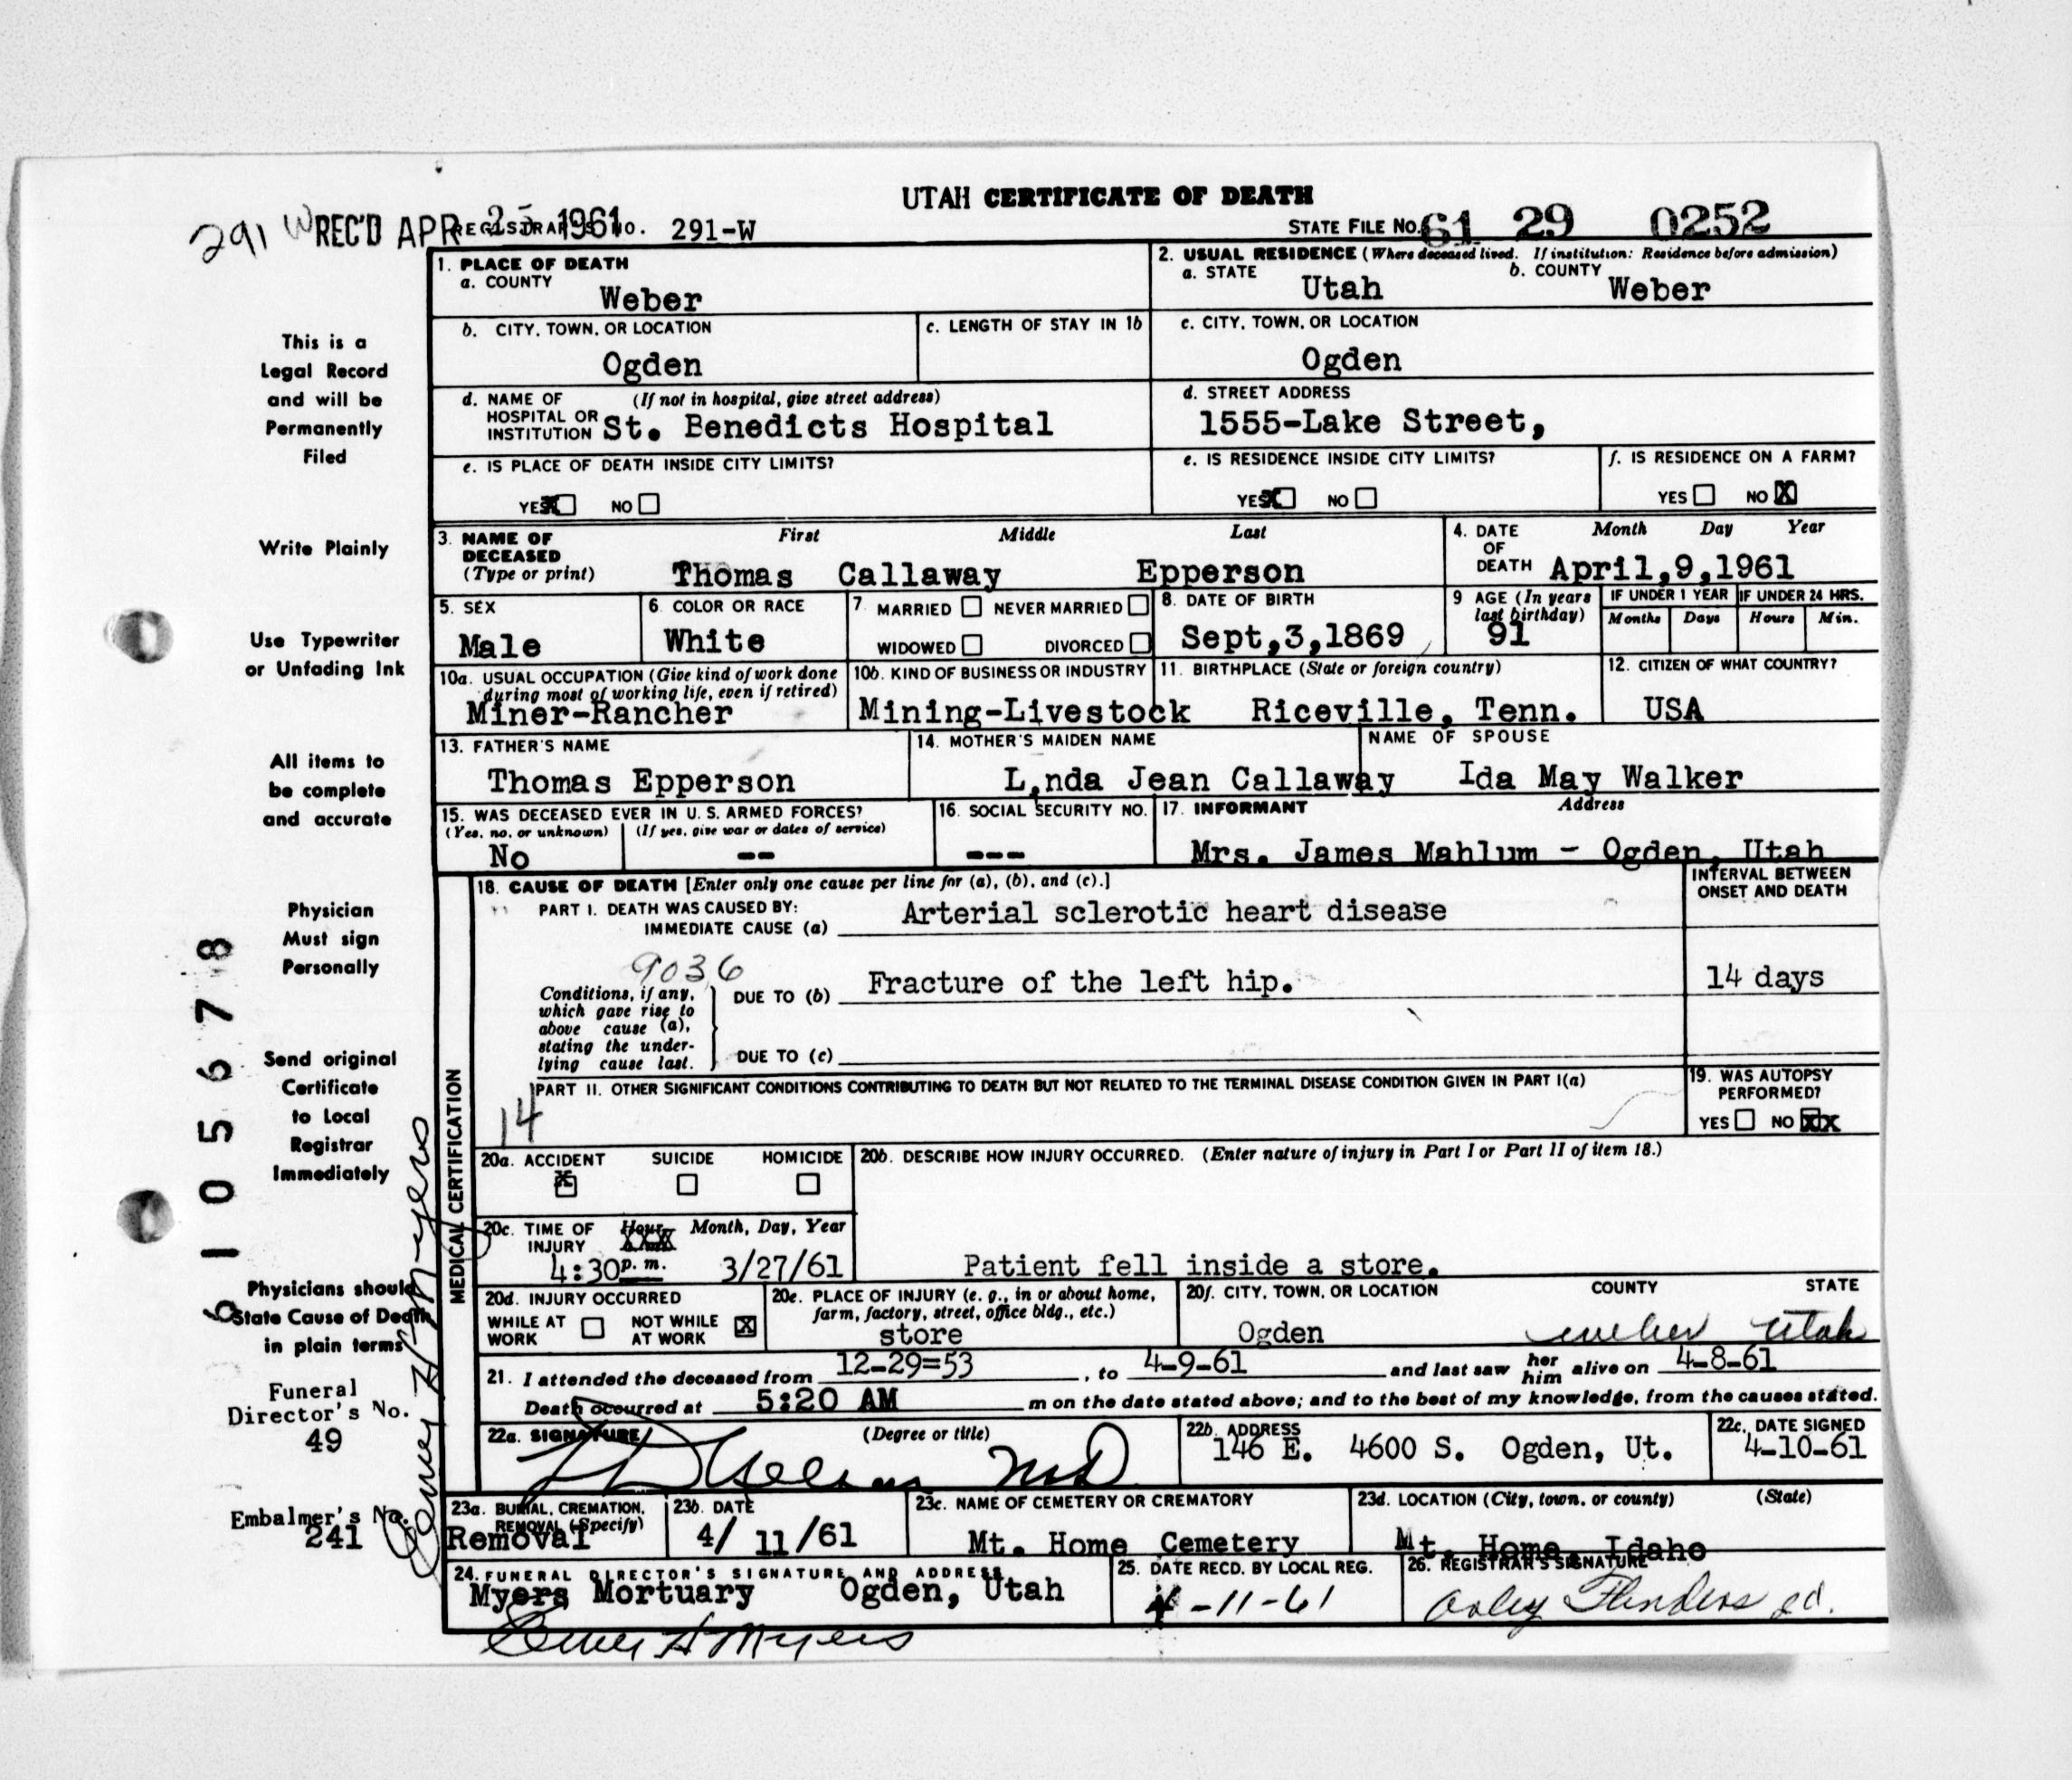 UTAH CERTIFICATE OF DEATH
291 W REC'D APR 25 1961 REGISTRAR'S NO. 291-W STATE FILE NO. 61 29 0252
1. PLACE OF DEATH
a. COUNTY
Weber
2. USUAL RESIDENCE (Where deceased lived. If institution: Residence before admission)
a. STATE Utah b. COUNTY Weber
b. CITY, TOWN, OR LOCATION
Ogden
c. LENGTH OF STAY IN 1b
c. CITY, TOWN, OR LOCATION
Ogden
d. NAME OF (If not in hospital, give street address)
HOSPITAL OR
INSTITUTION St. Benedicts Hospital
d. STREET ADDRESS
1555-Lake Street,
e. IS PLACE OF DEATH INSIDE CITY LIMITS?
YES X NO
e. IS RESIDENCE INSIDE CITY LIMITS?
YES X NO
f. IS RESIDENCE ON A FARM?
YES NO X
3. NAME OF DECEASED (Type or print)
First Middle Last
Thomas Callaway Epperson
4. DATE OF DEATH Month Day Year
April,9,1961
5. SEX
Male
6. COLOR OR RACE
White
7. MARRIED NEVER MARRIED
WIDOWED DIVORCED
8. DATE OF BIRTH
Sept,3,1869
9 AGE (In years last birthday)
91
IF UNDER 1 YEAR IF UNDER 24 HRS.
Months Days Hours Min.
10a. USUAL OCCUPATION (Give kind of work done
during most of working life, even if retired)
Miner-Rancher
10b. KIND OF BUSINESS OR INDUSTRY
Mining-Livestock
11. BIRTHPLACE (State or foreign country)
Riceville, Tenn.
12. CITIZEN OF WHAT COUNTRY?
USA
13. FATHER'S NAME
Thomas Epperson
14. MOTHER'S MAIDEN NAME
L,nda Jean Callaway
NAME OF SPOUSE
Ida May Walker
15. WAS DECEASED EVER IN U. S. ARMED FORCES?
(Yes, no, or unknown) (If yes, give war or dates of service)
No --
16. SOCIAL SECURITY NO.
---
17. INFORMANT Address
Mrs. James Mahlum - Ogden, Utah
MEDICAL CERTIFICATION
18. CAUSE OF DEATH [Enter only one cause per line for (a), (b), and (c).]
INTERVAL BETWEEN
ONSET AND DEATH
PART I. DEATH WAS CAUSED BY:
IMMEDIATE CAUSE (a) Arterial sclerotic heart disease
9036
Conditions, if any,
which gave rise to
above cause (a),
stating the under-
lying cause last.
DUE TO (b) Fracture of the left hip. 14 days
DUE TO (c)
PART II. OTHER SIGNIFICANT CONDITIONS CONTRIBUTING TO DEATH BUT NOT RELATED TO THE TERMINAL DISEASE CONDITION GIVEN IN PART I(a)
14
19. WAS AUTOPSY
PERFORMED?
YES NO XX
20a. ACCIDENT SUICIDE HOMICIDE
X
20b. DESCRIBE HOW INJURY OCCURRED. (Enter nature of injury in Part I or Part II of item 18.)
Patient fell inside a store.
20c. TIME OF INJURY Hour Month, Day, Year
XXX
4:30 p. m. 3/27/61
20d. INJURY OCCURRED
WHILE AT WORK NOT WHILE AT WORK X
20e. PLACE OF INJURY (e. g., in or about home,
farm, factory, street, office bldg., etc.)
store
20f. CITY, TOWN, OR LOCATION COUNTY STATE
Ogden weber Utah
21. I attended the deceased from 12-29=53, to 4-9-61 and last saw her him alive on 4-8-61
Death occurred at 5:20 AM m on the date stated above; and to the best of my knowledge, from the causes stated.
22a. SIGNATURE (Degree or title)
MD
22b. ADDRESS
146 E. 4600 S. Ogden, Ut.
22c. DATE SIGNED
4-10-61
23a. BURIAL, CREMATION,
REMOVAL (Specify)
Removal
23b. DATE
4/ 11/61
23c. NAME OF CEMETERY OR CREMATORY
Mt. Home Cemetery
23d. LOCATION (City, town, or county) (State)
Mt. Home, Idaho
24. FUNERAL DIRECTOR'S SIGNATURE AND ADDRESS
Myers Mortuary Ogden, Utah
H Myers
25. DATE RECD. BY LOCAL REG.
4-11-61
26. REGISTRAR'S SIGNATURE
Flinders
This is a
Legal Record
and will be
Permanently
Filed
Write Plainly
Use Typewriter
or Unfading Ink
All items to
be complete
and accurate
Physician
Must sign
Personally
Send original
Certificate
to Local
Registrar
Immediately
Physicians should
State Cause of Death
in plain terms
Funeral
Director's No.
49
Embalmer's No.
241
H Myers
6105678